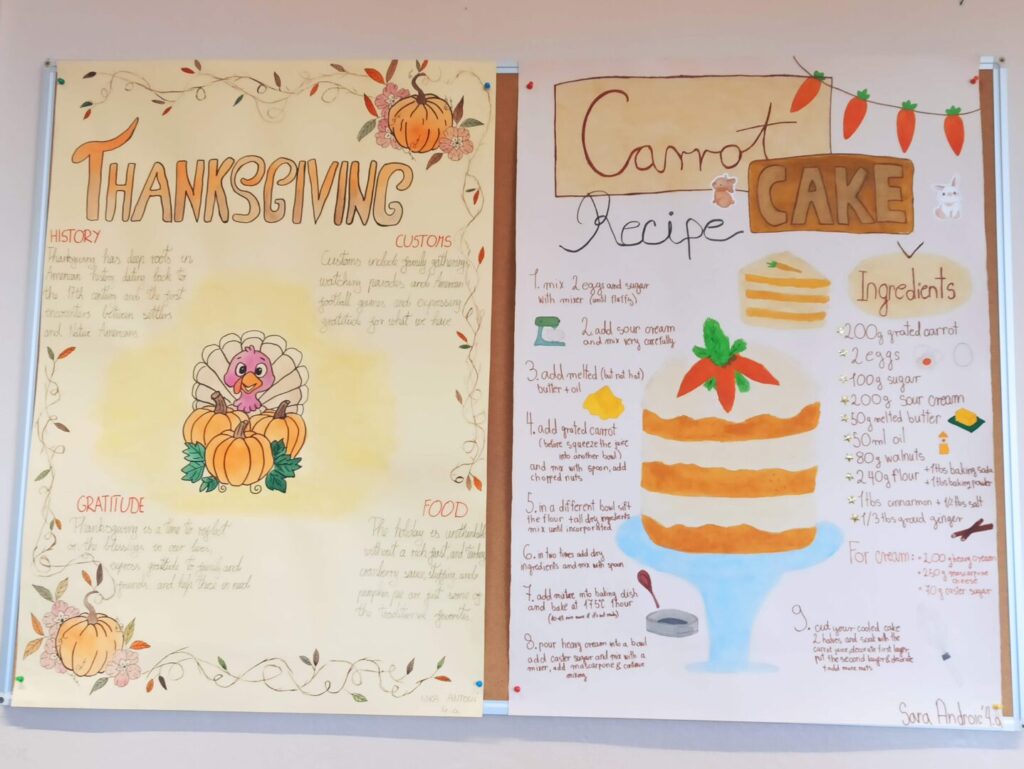 THANKSGIVING
HISTORY
Thanksgiving has deep roots in
American history dating back to
the 17th century and the first
encounters between settlers
and Native Americans.
CUSTOMS
Customs include family gatherings
watching parades and American
football games, and expressing
gratitude for what we have.
GRATITUDE
Thanksgiving is a time to reflect
on the blessings in our lives,
express gratitude to family and
friends, and help those in need
FOOD
The holiday is unthinkable
without a rich feast, and turkey,
cranberry sauce, stuffing, and
pumpkin pie are just some of
the traditional favorites.
4.a
Carrot
CAKE
Recipe
1. mix 2 eggs and sugar
with mixer (until fluffy)
2. add sour cream
and mix very carefully
3. add melted (but not hot)
butter + oil
4. add grated carrot
(before squeeze the juice
into another bowl)
and mix with spoon, add
chopped nuts
5. in a different bowl sift
the flour + all dry ingredients
mix until incorporated
6. in two times add dry
ingredients and mix with spoon
7. add mixture into baking dish
and bake at 175°C 1 hour
8. pour heavy cream into a bowl
add caster sugar and mix with a
mixer, add mascarpone & continue
mixing
9. cut your cooled cake
2 halves and soak with the
carrot juice, decorate first layer,
put the second layer & decorate
+ add more nuts
Ingredients
200g grated carrot
2 eggs
100g sugar
200g sour cream
50g melted butter
50ml oil
80g walnuts
240g flour + 1 tbs baking soda
+ 1 tbs baking powder
1 tbs cinnamon + 1/2 tbs salt
1/3 tbs groud ginger
For cream: • 200g heavy cream
• 250g mascarpone
cheese
• 70g caster sugar
Sara Androić 4.a